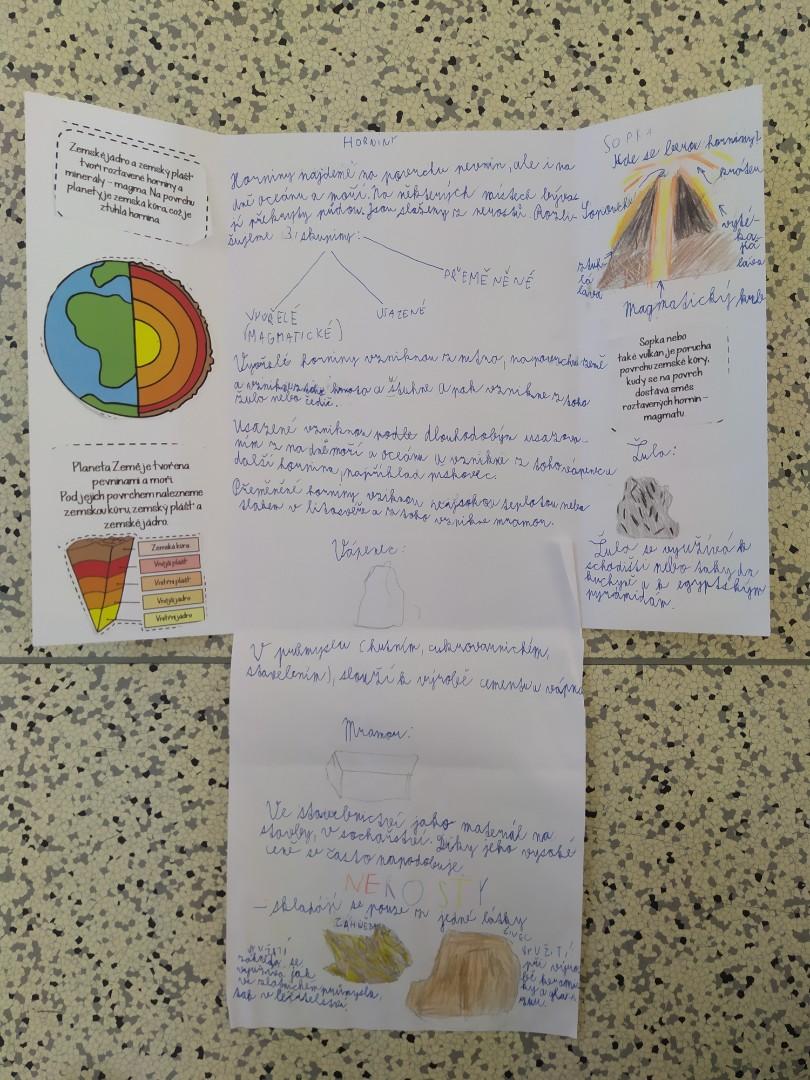 Zemské jádro a zemský plášť
tvoří roztavené horniny a
minerály - magma. Na povrchu
planety je zemská kůra, což je
ztuhlá hornina.
Planeta Země je tvořena
pevninami a moři.
Pod jejich povrchem nalezneme
zemskou kůru, zemský plášť a
zemské jádro.
Zemská kůra
Vnější plášť
Vnitřní plášť
Vnější jádro
Vnitřní jádro
HORNINY
Horniny najdeme na povrchu pevnin, ale i na
dně oceánu a moří. Na některých místech bývají
překryty půdou. Jsou složeny z nerostů. Rozli-
šujeme 3 skupiny:
PŘEMĚNĚNÉ
VYVŘELÉ
(MAGMATICKÉ)
USAZENÉ
Vyvřelé horniny vzniknou z nitra, na povrchu země
a ztuhne a pak vznikne z toho
žula nebo čedič.
Usazené vzniknou podle dlouhodobým usazov-
ním z na dně moří a oceánu a vznikne z toho vápenec a
další hornina, například pískovec.
Přeměněné horniny vzniknou teplotou nebo
tlakem v litosféře a z toho vznikne mramor.
Vápenec:
V průmyslu (hutním, cukrovarnickém,
stavebním), slouží k výrobě cementu a vápna
Mramor:
Ve stavebnictví jako materiál na
stavby, v sochařství. Díky jeho vysoké
ceně se často napodobuje.
NEROSTY
- skládají se pouze z jedné látky
ZÁHNĚDA
VYUŽITÍ
záhněda se
využívá jak
ve zlatnickém průmyslu,
tak v léčitelství.
ŽIVEC
VYUŽITÍ
při výro-
bě kerami-
ky a gla-
zur.
SOPKA
Kde se berou horniny?
Sopouch
kráter
vyté-
ka-
jící
láva
ztuh-
lá
láva
Magmatický krb
Sopka nebo
také vulkán je porucha
povrchu zemské kůry,
kudy se na povrch
dostává směs
roztavených hornin -
magmatu.
Žula:
Žula se využívá k
schodišti nebo taky do
kuchyně a k egyptským
pyramidám.